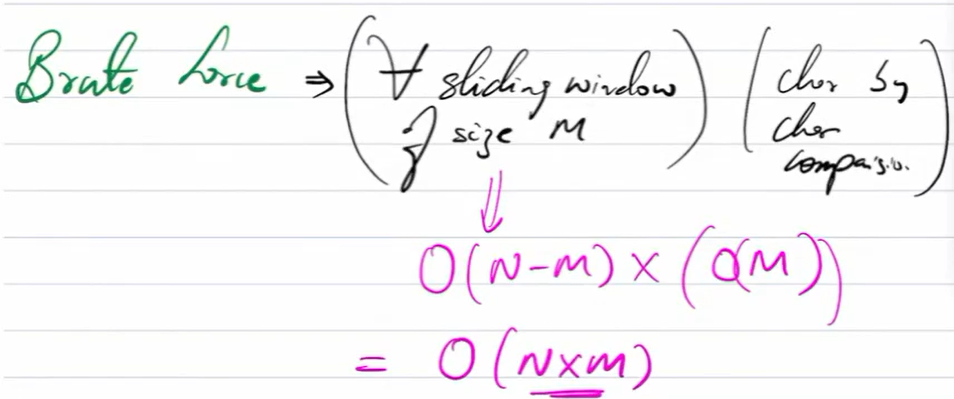 Brute force ⇒ (∀ sliding window of size M) (char by char comparison.)
⇓
O(N-M) × (O(M))
= O(N×M)